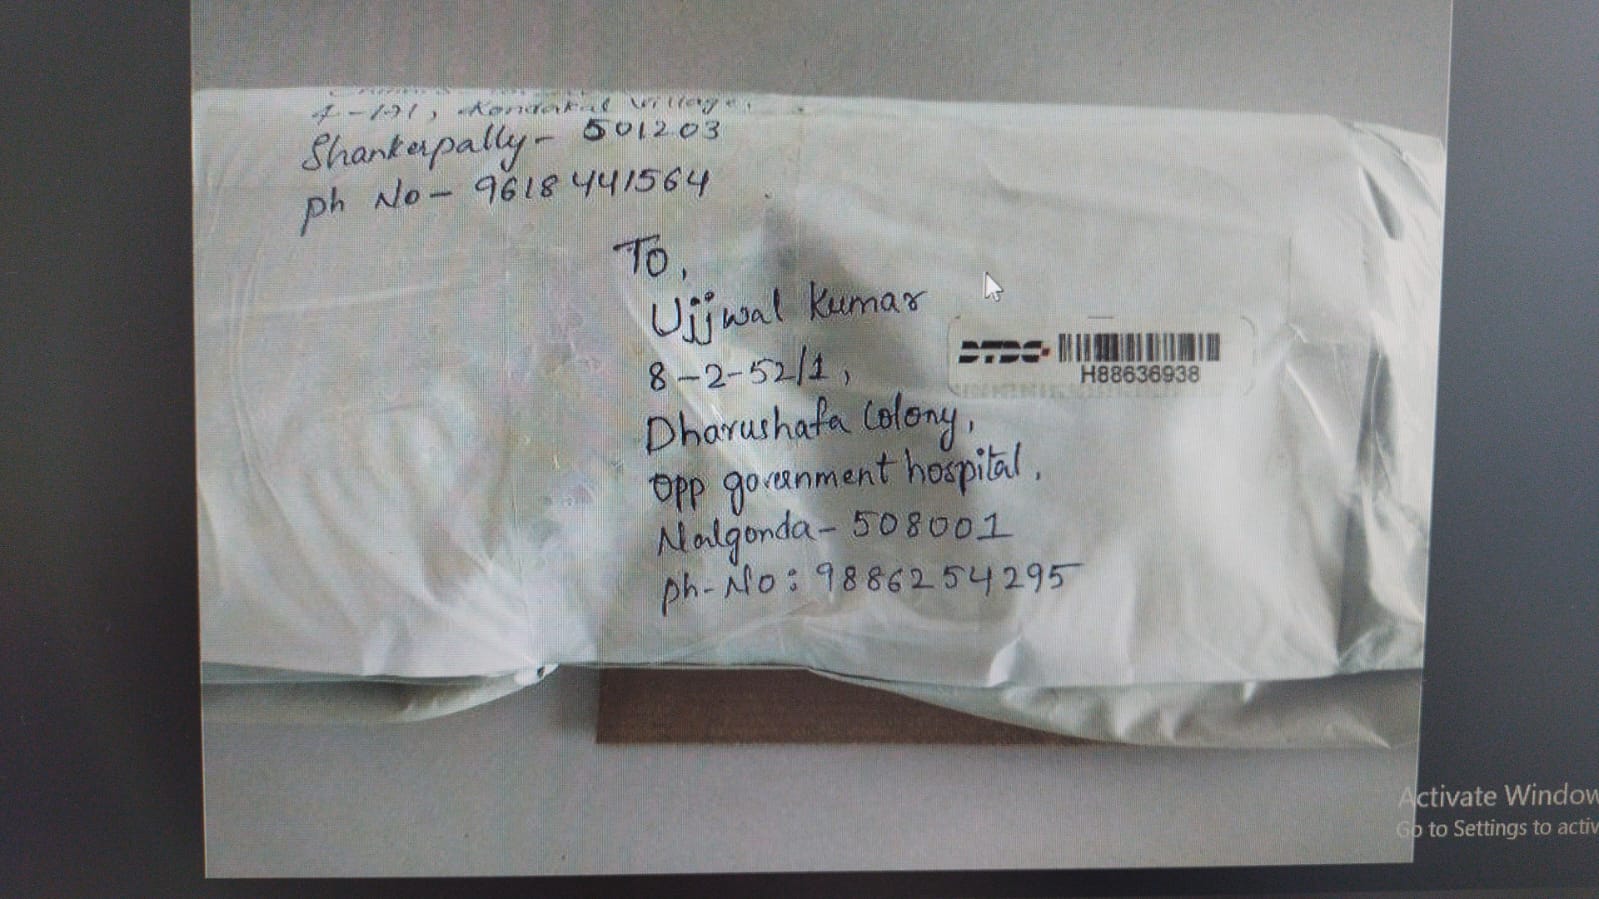 4-121, Kondakal village,
Shankerpally- 501203
ph No- 9618441564
To,
Ujjwal Kumar
8-2-52/1,
Dharushafa Colony,
opp government hospital,
Nalgonda- 508001
ph-No: 9886254295
DTDC
H88636938
Activate Window
Go to Settings to activ